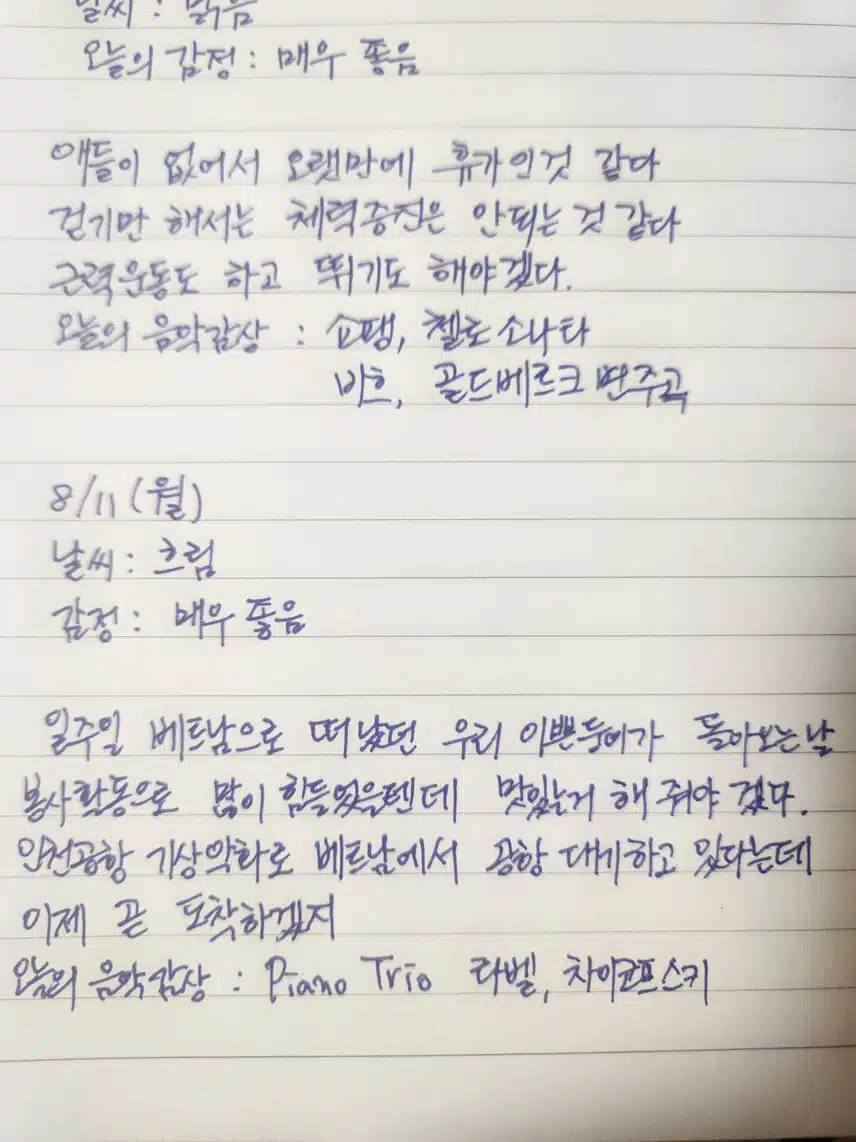 날씨 : 맑음
오늘의 감정 : 매우 좋음
애들이 없어서 오랫만에 휴가인것 같다
걷기만 해서는 체력증진은 안되는 것 같다
근력운동도 하고 뛰기도 해야겠다.
오늘의 음악감상 : 쇼팽, 첼로소나타
바흐, 골드베르크 변주곡
8/11 (월)
날씨 : 흐림
감정 : 매우 좋음
일주일 베트남으로 떠났던 우리 이쁜둥이가 돌아오는날
봉사활동으로 많이 힘들었을텐데 맛있는거 해 줘야 겠다.
인천공항 기상악화로 베트남에서 공항 대기하고 있다는데
이제 곧 도착하겠지
오늘의 음악감상 : Piano Trio 라벨, 차이코프스키